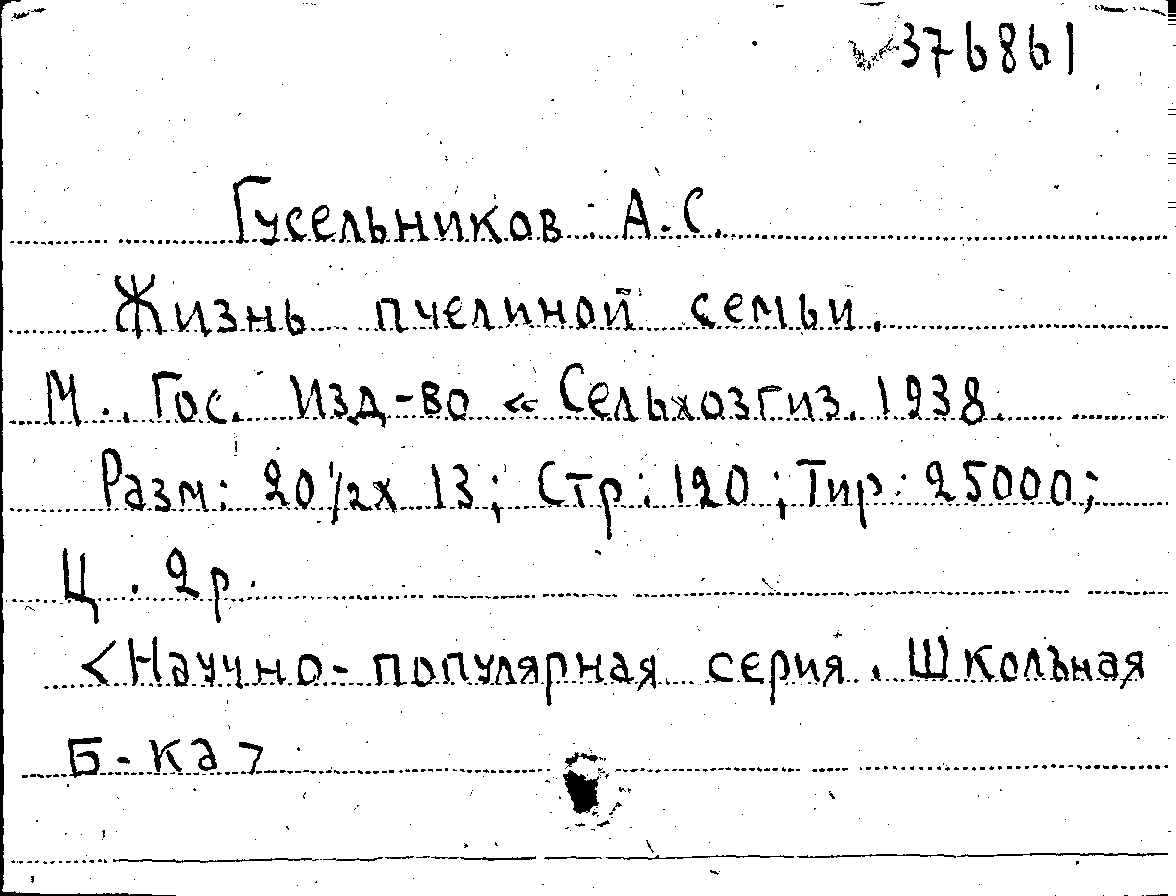 376861
Гусельников А.С.
Жизнь пчелиной семьи.
М.. Гос. Изд-во «Сельхозгиз. 1938.
Разм: 20½х 13; Стр: 120; Тир: 25000;
Ц. 2р.
<Научно-популярная серия. Школьная
Б-ка>